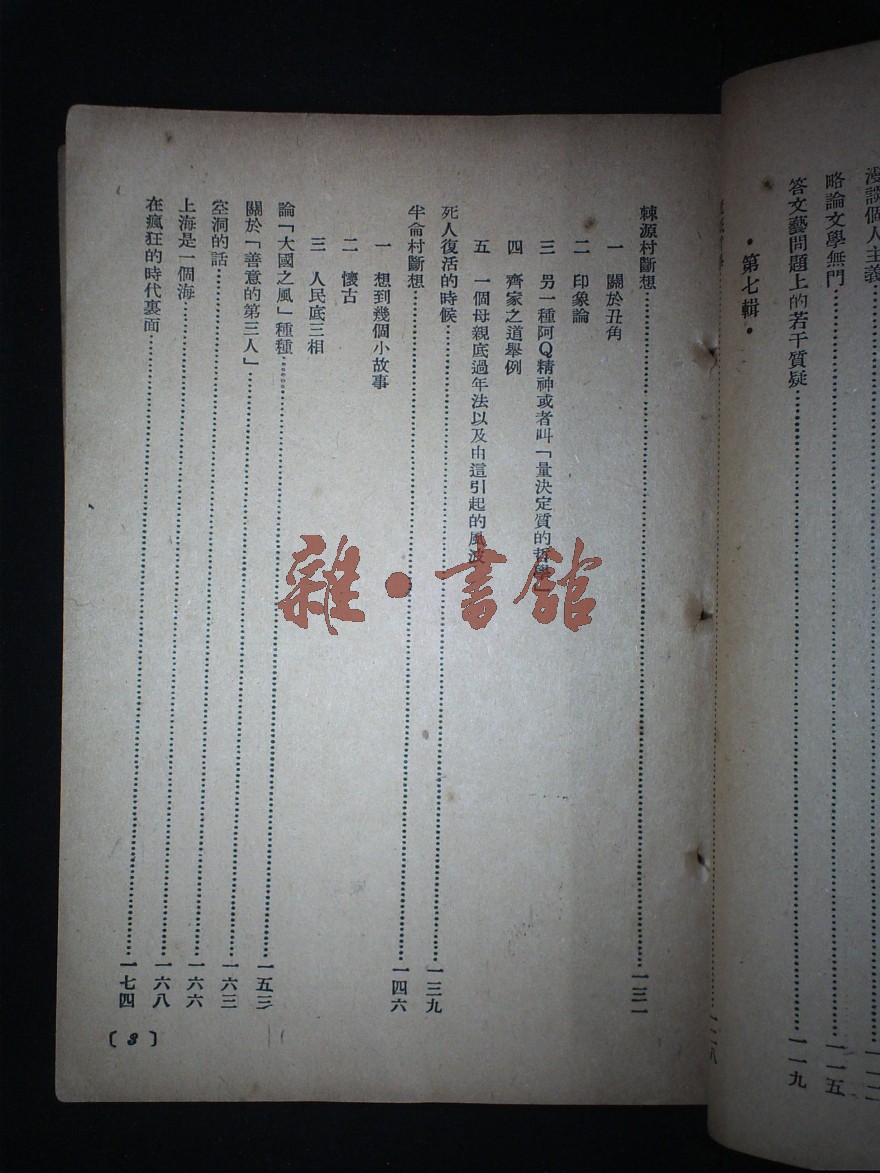 漫談個人主義
略論文學無門……一一五
答文藝問題上的若干質疑……一一九
•第七輯•
棘源村斷想……一三一
一 關於丑角
二 印象論
三 另一種阿Q精神或者叫「量決定質的哲學」
四 齊家之道舉例
五 一個母親底過年法以及由這引起的風波
死人復活的時候……一三九
半侖村斷想……一四六
一 想到幾個小故事
二 懷古
三 人民底三相
論「大國之風」種種……一五三
關於「善意的第三人」……一六三
空洞的話……一六六
上海是一個海……一六八
在瘋狂的時代裏面……一七四
〔3〕
雜•書館